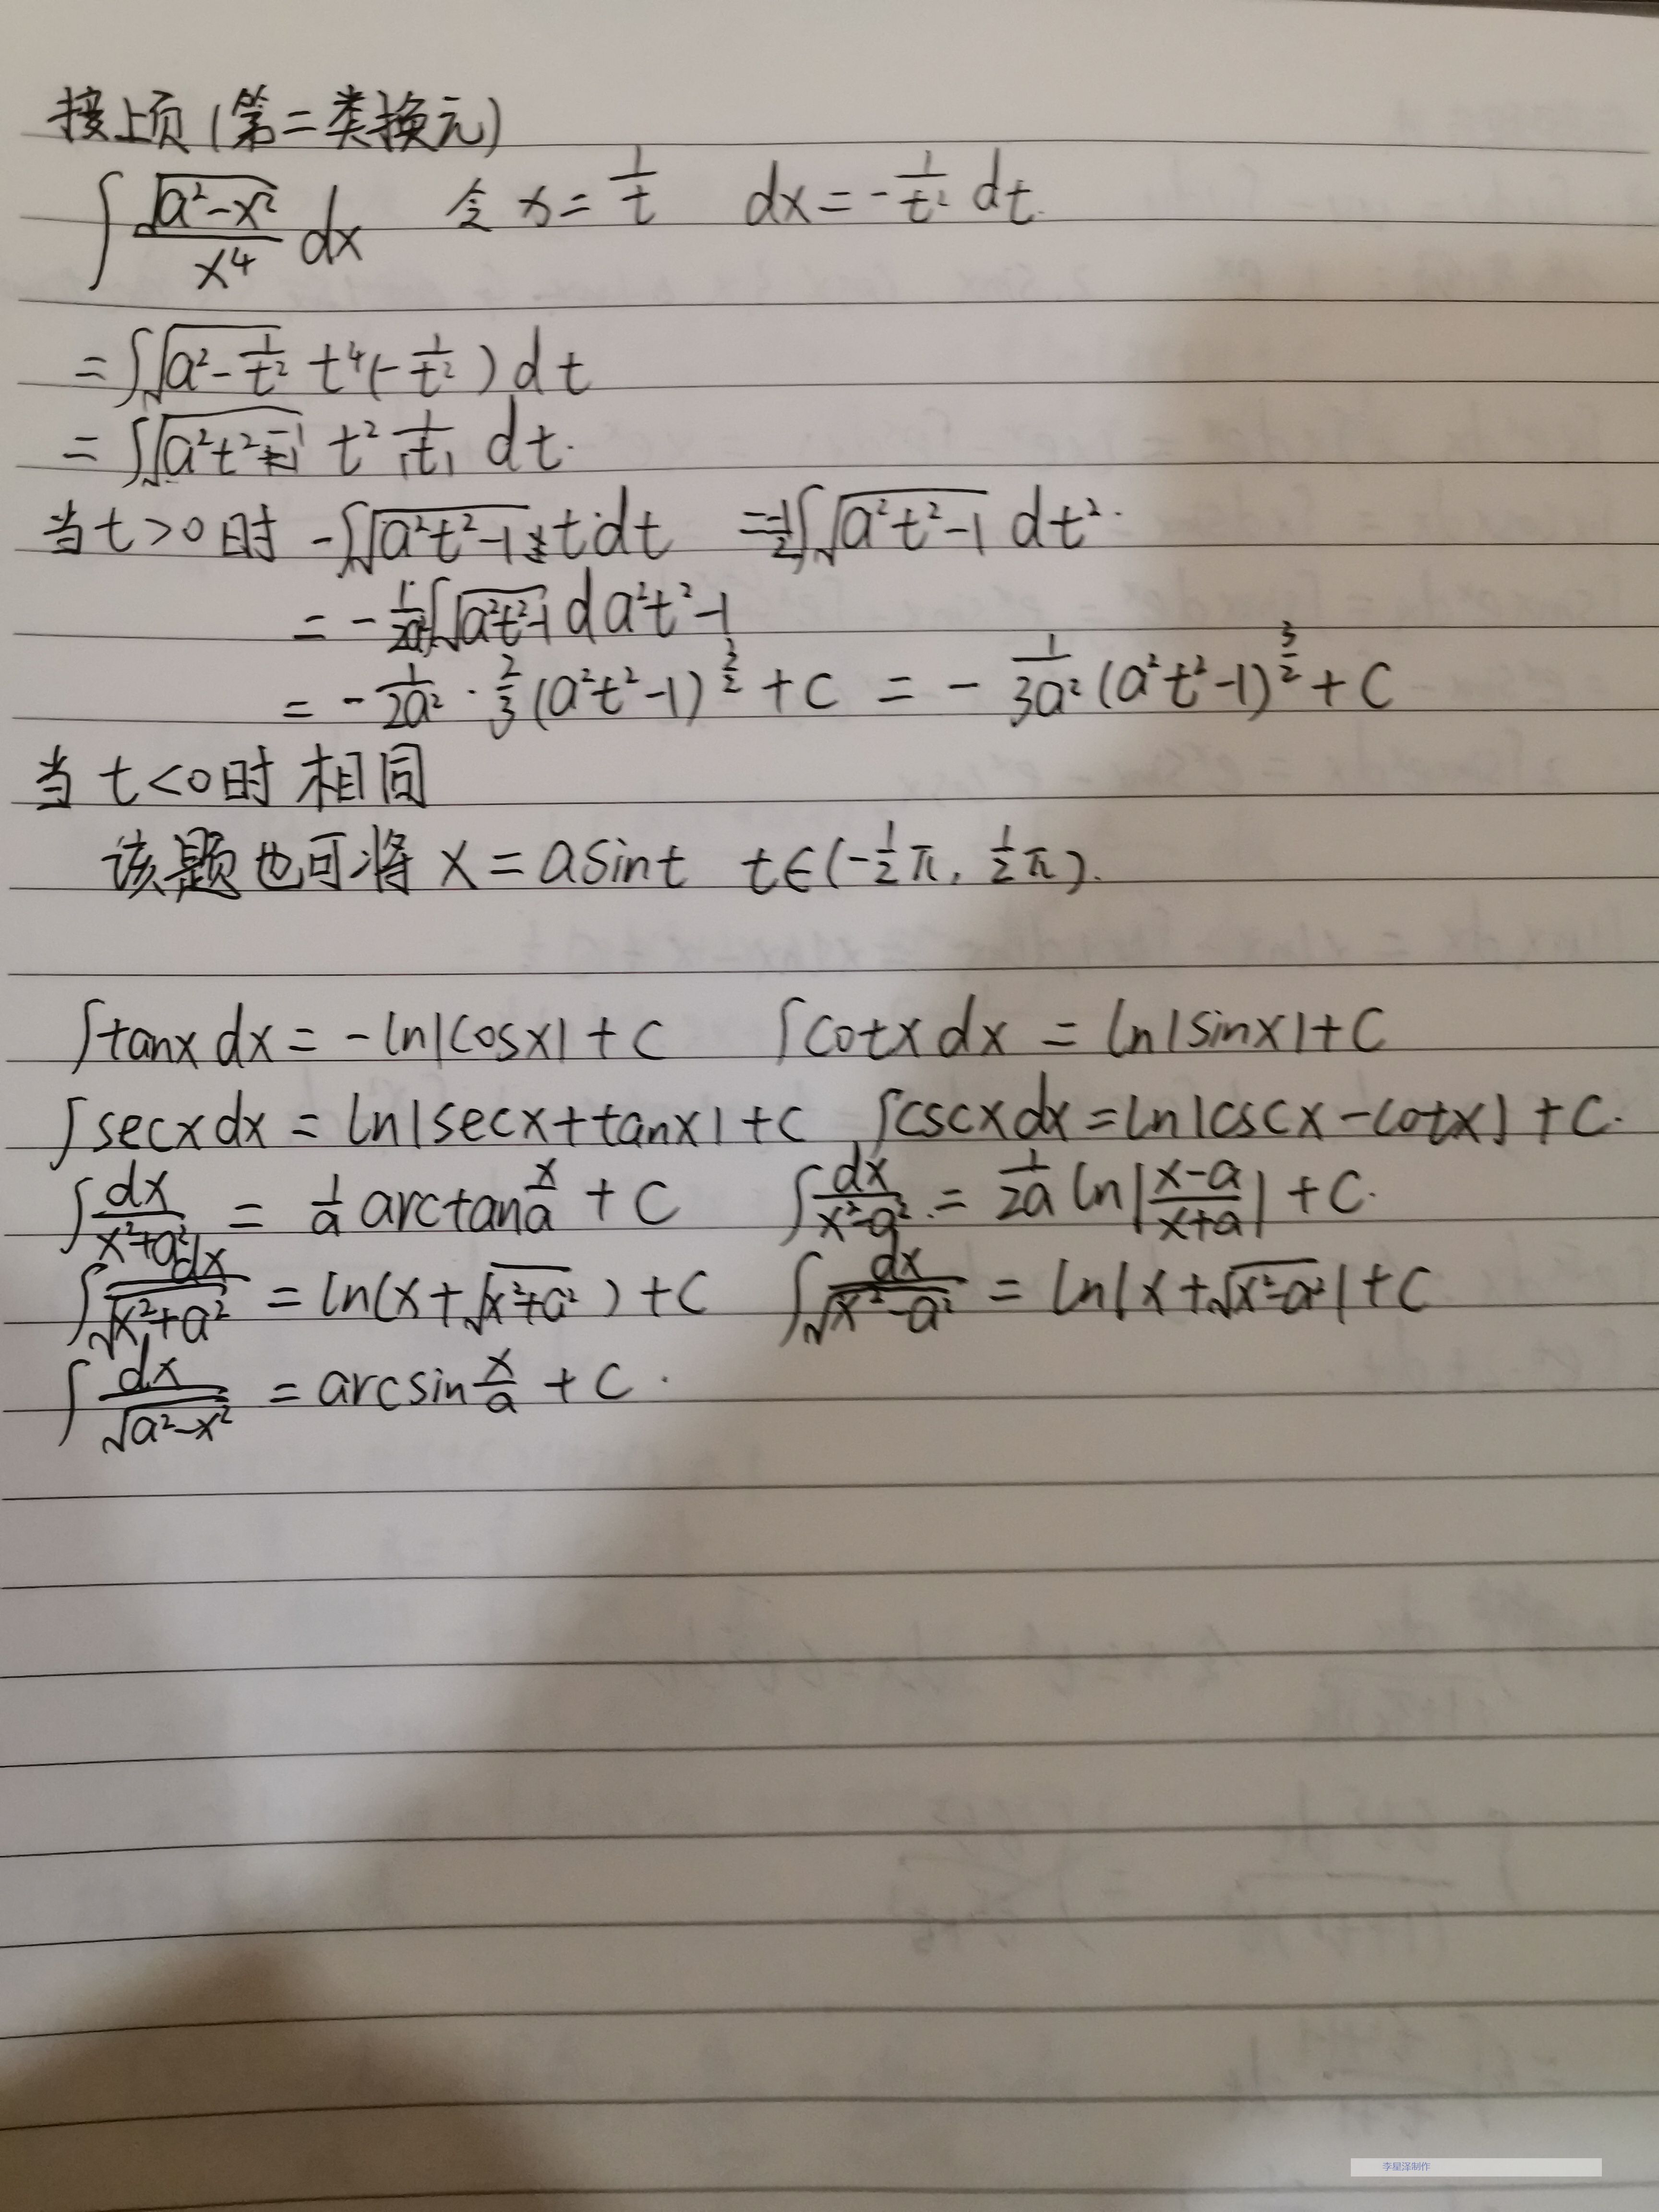 接上页(第二类换元)
∫ √(a²-x²)/x⁴ dx 令 x = 1/t dx = -1/t² dt.
= ∫√(a²-1/t²) t⁴(-1/t²) dt
= ∫√(a²t²-1) t² 1/|t| dt.
当 t>0 时 -∫√(a²t²-1) t dt = -1/2 ∫√(a²t²-1) dt².
= -1/2a² ∫√(a²t²-1) d a²t²-1
= -1/2a² · 2/3 (a²t²-1)^(3/2) + C = -1/3a² (a²t²-1)^(3/2) + C
当 t<0 时 相同
该题也可将 x = asint t∈(-1/2π, 1/2π).
∫tanx dx = -ln|cosx| + C ∫cotx dx = ln|sinx| + C
∫secx dx = ln|secx+tanx| + C ∫cscx dx = ln|cscx-cotx| + C.
∫dx/(x²+a²) = 1/a arctan x/a + C ∫dx/(x²-a²) = 1/2a ln|(x-a)/(x+a)| + C.
∫dx/√(x²+a²) = ln(x+√(x²+a²)) + C ∫dx/√(x²-a²) = ln|x+√(x²-a²)| + C
∫dx/√(a²-x²) = arcsin x/a + C.
李星泽制作